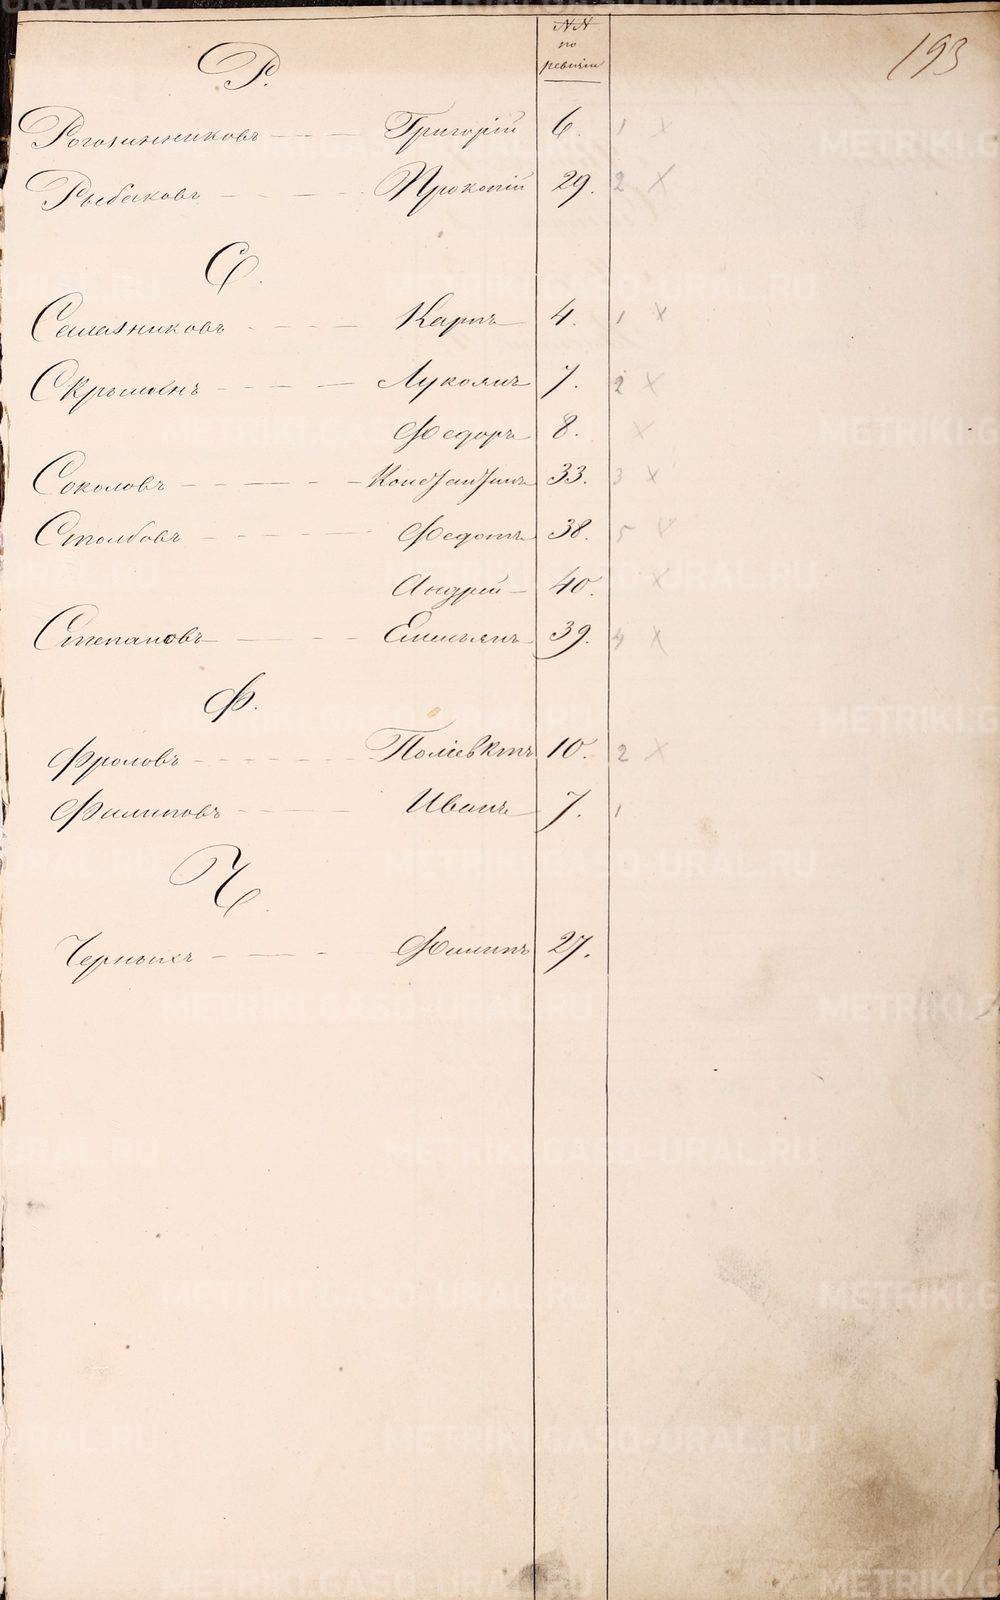 №№
по
ревизіи
193
Р.
Рогозинниковъ Григорій 6. 1 x
Рыбаковъ Прокопій 29. 2 x
С.
Карпъ 4. 1 x
7. 2 x
Федоръ 8. x
Соколовъ Константинъ 33. 3 x
Столбовъ Федотъ 38. 5 x
Андрей 40. x
Степановъ Емельянъ 39. 4 x
Ф.
Фроловъ Поліевктъ 10. 2 x
Филиповъ Иванъ 7. 1
Ч.
Черныхъ Филипъ 27.
METRIKI.GASO-URAL.RU